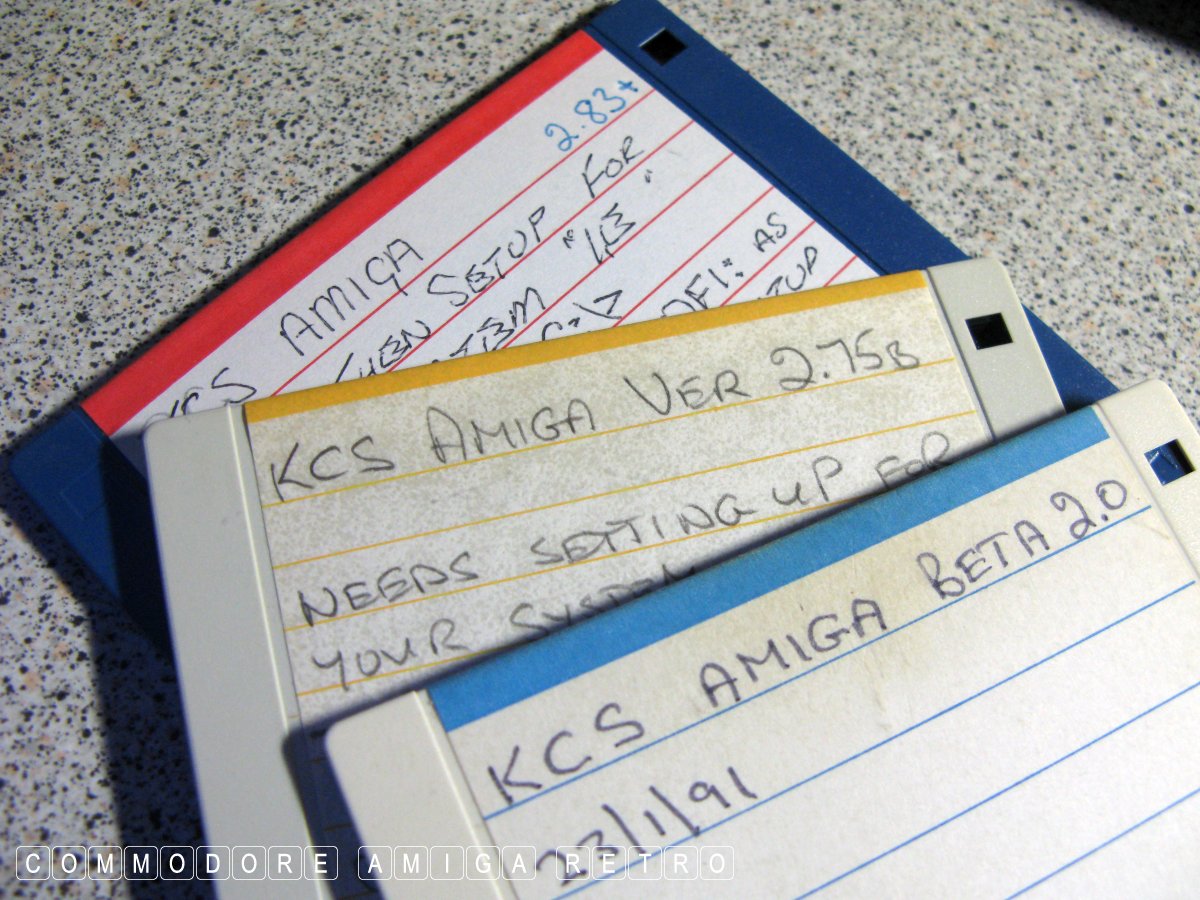 2.83+
KCS AMIGA
WHEN SETUP FOR
"
C:\>
DF1: AS
KCS AMIGA VER 2.75B
NEEDS SETTING UP FOR
YOUR SYSTEM
KCS AMIGA BETA 2.0
23/1/91
COMMODORE AMIGA RETRO